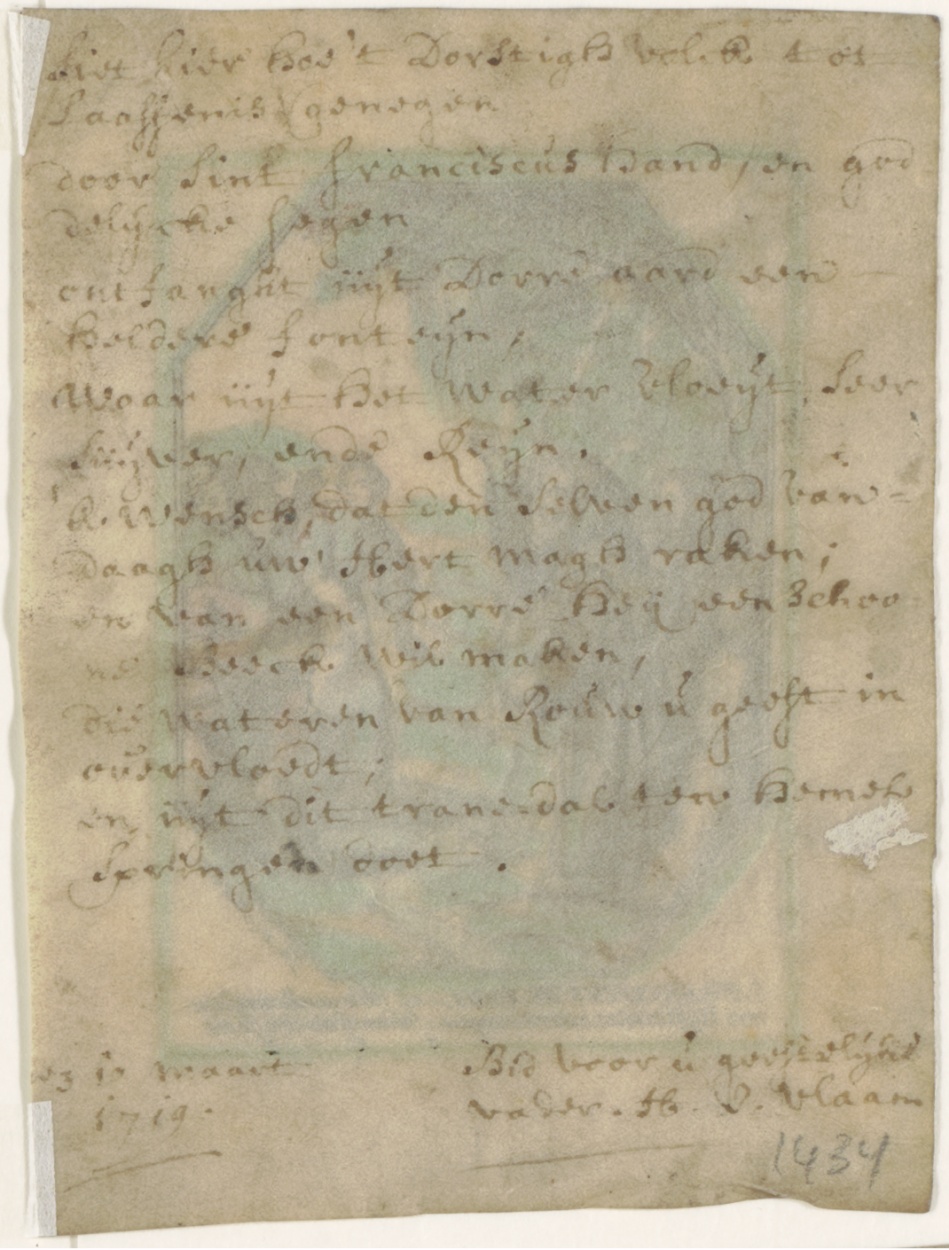 Siet hier hoe't Dorstigh volck tot
Laaffenis genegen
door Sint Franciscus hand, en god
delijcke segen
ontfanght uijt Dorre aard een
heldere fonteijn,
waar uijt het water vloeijt, seer
suijver, ende Reijn.
k.wensch, dat den selven god van=
daagh uw' Hert magh raken;
en van een Dorre heij een schoo
ne Beeck wil maken,
die wateren van Rouw u geeft in
overvloedt;
en uijt dit trane-dal ten hemels
springen doet.
maart
1719.
Bid voor u geestelijke
vader. H. V. Vlaam
1434